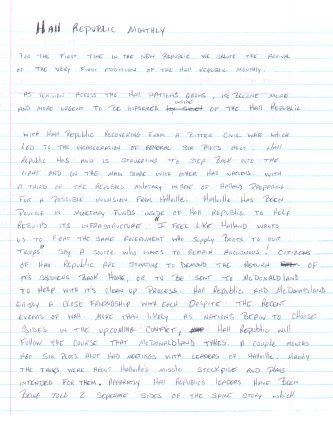 Hall Republic Monthly
For the first time in the new Republic we salute the arrival
of the very first edition of the Hall Republic Monthly.
As tension across the Hall nations grows, it's become more
and more urgent to be informed inside of the Hall Republic.
With Hall Republic recovering from a bitter civil war which
led to the incarceration of General Sir Plots Alot. Hall
Republic has and is struggling to step back into the
light and on the main scene with other Hall nations. With
a third of the Republics military inside of Halland preparing
for a possible invasion from Hallville. Hallville has been
pouring in monetary funds inside of Hall Republic to help
rebuild its infrastructure. "I feel like Halland wants
us to fight the same government who supply boots to our
troops" say a source who wants to remain anonymous. Citizens
of Hall Republic are starting to demand the return of
it's soldiers back home, or to be sent to McDonaldland
to help with it's clean up process. Hall Republic and McDonaldland
enjoy a close friendship with each despite the recent
events of war. More than likely as nations begin to choose
sides in the upcoming conflict, Hall Republic will
follow the course that McDonaldland takes. A couple months
ago Sir Plots Alot had meetings with leaders of Hallville. Mainly
the talks were about Hallville's missile stockpile and plans
intended for them. Apparently Hall Republics leaders have been
being told 2 seperate sides of the same story which